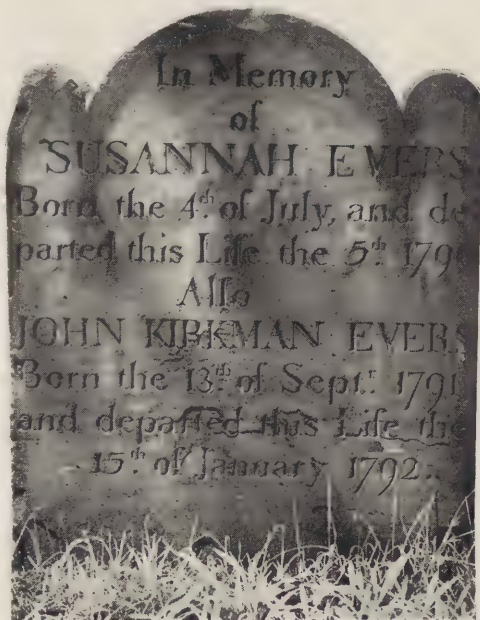 In Memory
of
SUSANNAH EVERS
Born the 4th of July, and de
parted this Life the 5th 179
Also
JOHN KIRKMAN EVERS
Born the 13th of Septr. 1791
and departed this Life the
15th of January 1792.